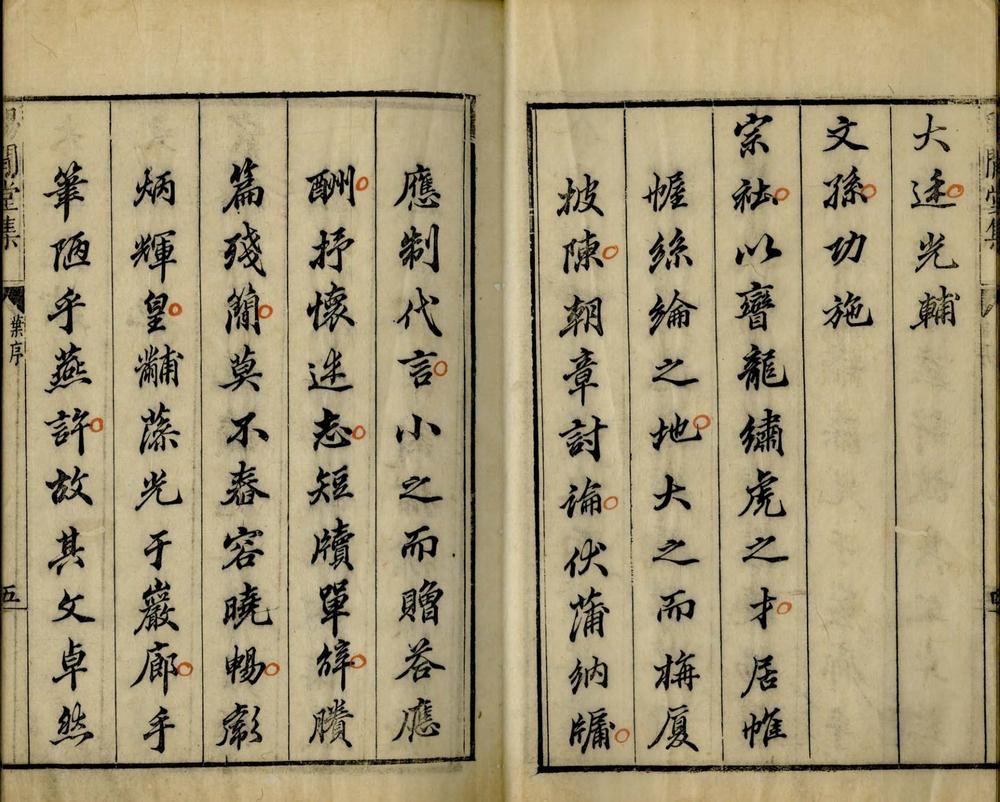 大光輔
文孫功施
宗社以龍繡虎之才居帷
幄絲綸之地大之而梅厦
披陳朝章討論伏蒲納牖
應制代言小之而贈荅應
酬抒懷述志短牘單辭賸
篇殘簡莫不舂容曉暢彪
炳輝皇黼藻光于巖廊手
筆陋乎燕許故其文卓然
堂集 葉序 五